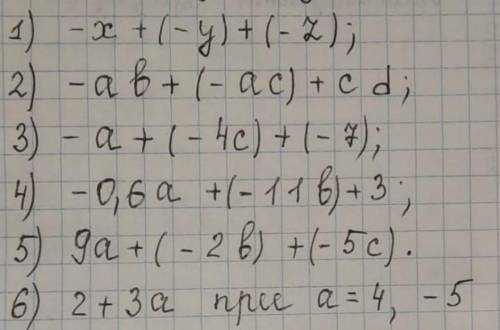 1) -x + (-y) + (-z);
2) -ab + (-ac) + cd;
3) -a + (-4c) + (-7);
4) -0,6a + (-11b) + 3;
5) 9a + (-2b) + (-5c).
6) 2 + 3a при a = 4, -5